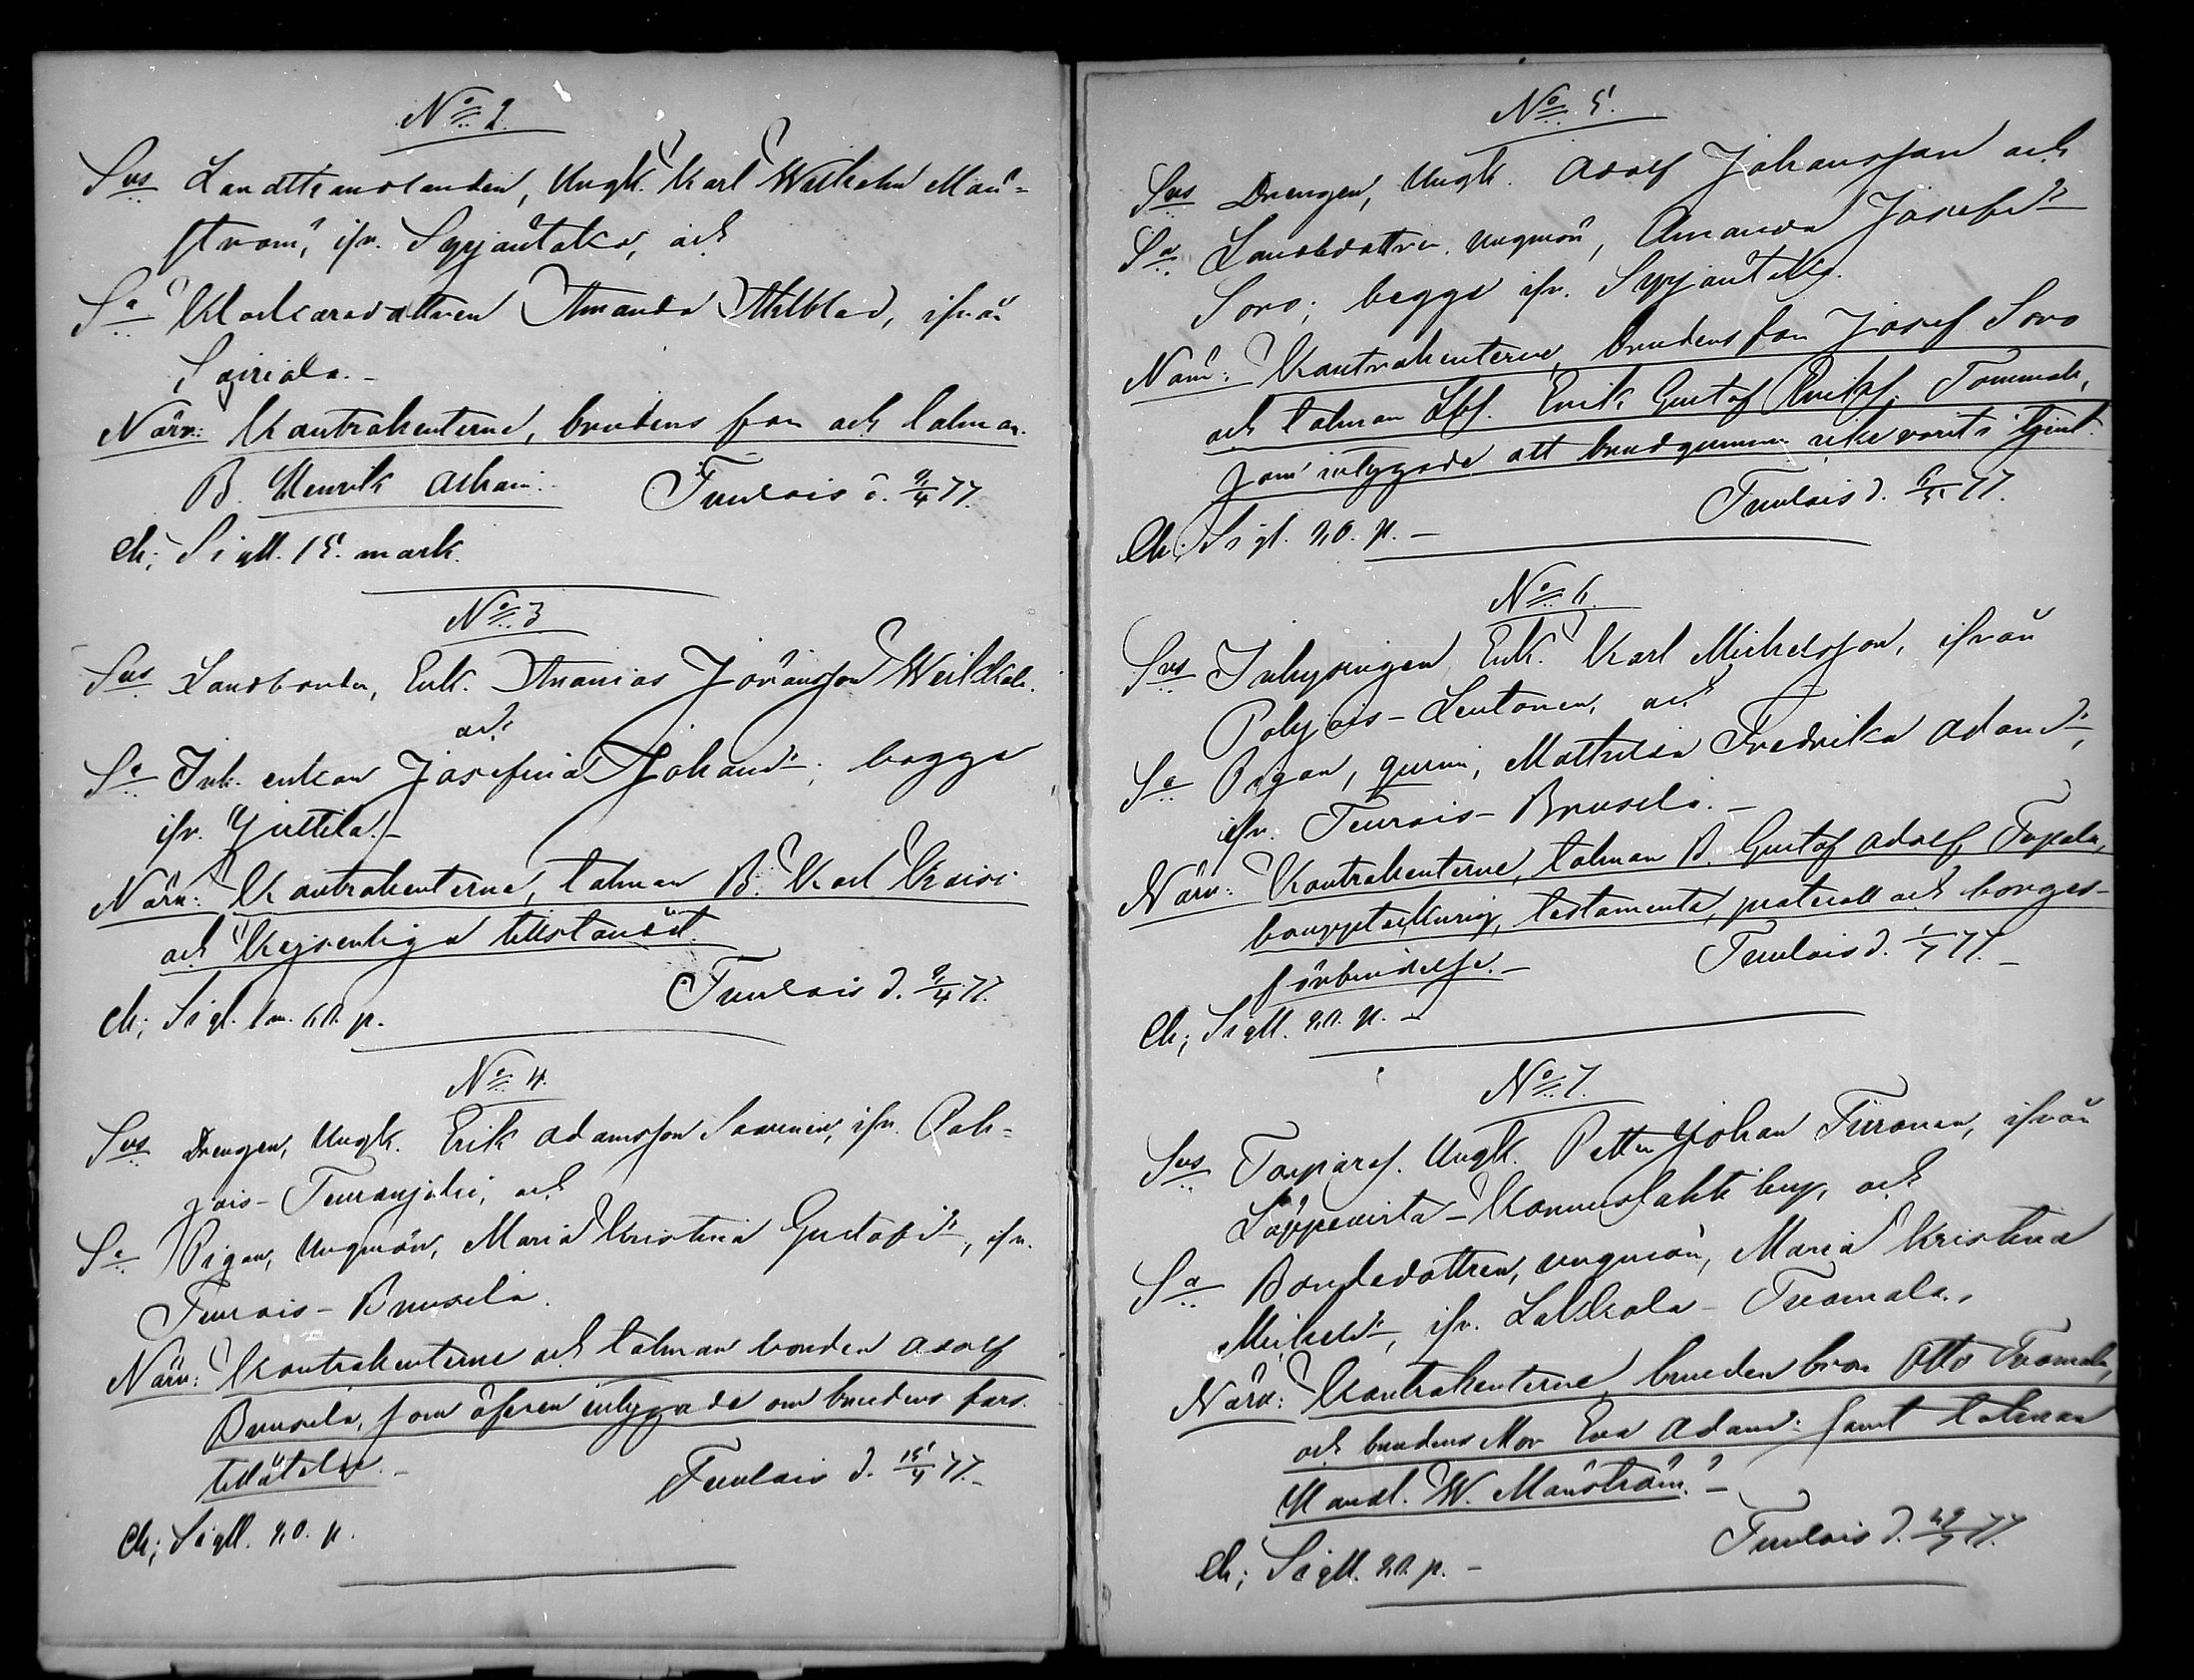 No 2.
Sus Landthandlanden, Ungk. Karl Wilhelm Män=
ström, ifr. Syrjäntaka, och
Sa Klockaredottren Amanda Ahlblad, ifrån
Sairiala.-
Närv: Kontrahenterne, brudens far och talman
B. Henrik Tuulois d. 9/4 77.
Ch; Sigill. 15. mark.
No 3
Sus Landbonden, Enk. Ananias Göransson
och
Sa Inh. enkan Josefina Johansdr, begge
ifr. Juttila.-
Närv: Kontrahenterne, talman B. Karl
och Kejserliga tillstånd.
Tuulois d. 9/4 77.
Ch; Sigl. 1 m. 60. p.
No 4.
Sus Drengen, Ungk. Erik Adamsson Saarinen, ifr. Poh=
jois- och
Sa Pigan, Ungmön, Maria Kristina Gustafsdr, ifr.
Teurois- Bruusila.
Närv: Kontrahenterne och talman bonden Adolf
Bruusila, som äfven intygade om brudens fars
tillåtelse.- Tuulois d. 15/4 77.-
Ch; Sigill. 20. p.
No 5.
Sus Drengen, Ungk. Adolf Johansson och
Sa Landbdottren, ungmön, Amanda Josefsdr
Soro; begge ifr. Syrjäntaka.
Närv: Kontrahenterne, brudens far Josef Soro
och talman Lbf. Erik Gustaf Eriksf. Tommola,
som intygade att brudgummen icke varit i tjenst.
Tuulois d. 6/5 77.
Ch; Sigl. 20. p.-
No 6.
Sus Inhysingen Enk. Karl Michelsson, ifrån
Pohjois-Lentonen, och
Sa Pigan, qvin, Mathilda Fredrika Adamsdr,
ifr. Teurois- Bruusila.-
Närv: Kontrahenterne, talman B. Gustaf Adolf
bouppteckning, testamente, protocoll och borges-
förbindelse.- Tuulois d. 1/7 77.-
Ch; Sigill. 20. p.-
No 7.
Sus Torparef. Ungk. Petter Johan Turonen, ifrån
Leppävirta-Konnuslahti by, och
Sa Bondedottren, ungmön, Maria Kristina
Mickelsdr, ifr. Lalkkola- Tuomala.
Närv: Kontrahenterne, brudens bror Otto Tuomala,
och brudens Mor Eva Adamsdr: samt talman
Handl. W. Mänström.-
Tuulois d. 29/7 77.
Ch; Sigill. 20. p.-